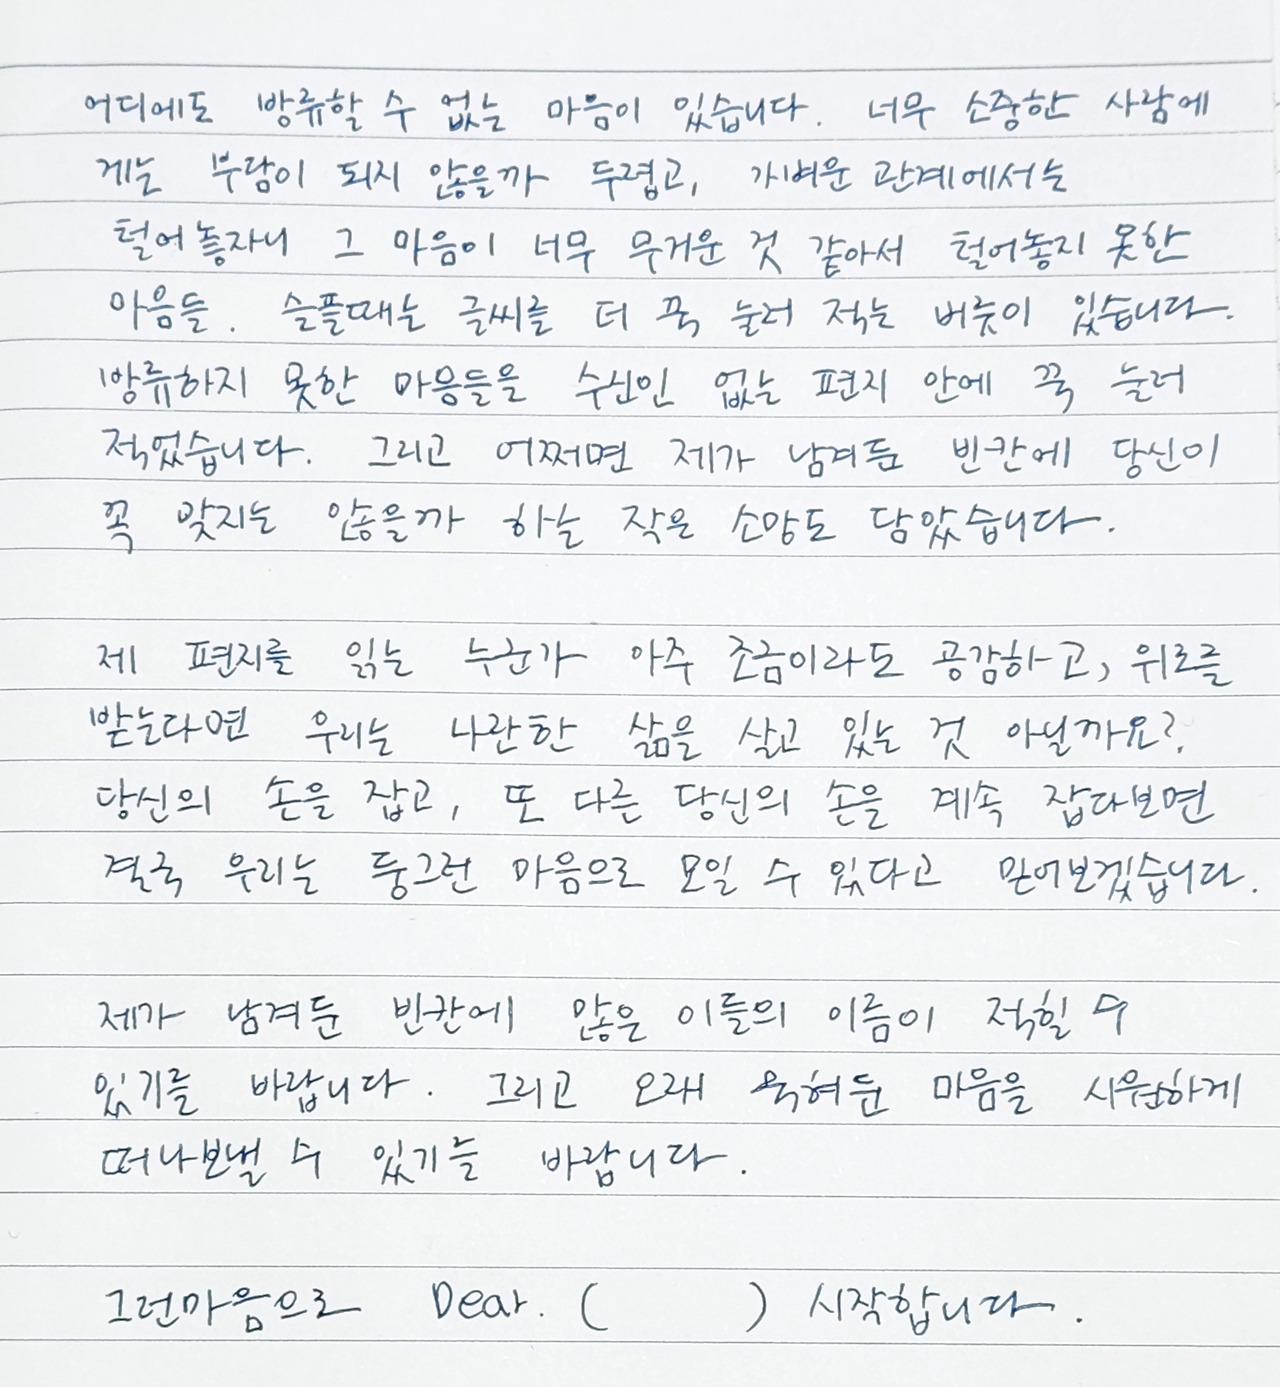 어디에도 방류할 수 없는 마음이 있습니다. 너무 소중한 사람에
게는 부담이 되지 않을까 두렵고, 가벼운 관계에서는
털어놓자니 그 마음이 너무 무거운 것 같아서 털어놓지 못한
마음들. 슬플때는 글씨를 더 꾹 눌러 적는 버릇이 있습니다.
방류하지 못한 마음들을 수신인 없는 편지 안에 꾹 눌러
적었습니다. 그리고 어쩌면 제가 남겨둔 빈칸에 당신이
꼭 맞지는 않을까 하는 작은 소망도 담았습니다.
제 편지를 읽는 누군가 아주 조금이라도 공감하고, 위로를
받는다면 우리는 나란한 삶을 살고 있는 것 아닐까요?
당신의 손을 잡고, 또 다른 당신의 손을 계속 잡다보면
결국 우리는 둥그런 마음으로 모일 수 있다고 믿어보겠습니다.
제가 남겨둔 빈칸에 많은 이들의 이름이 적힐 수
있기를 바랍니다. 그리고 오래 묵혀둔 마음을 시원하게
떠나보낼 수 있기를 바랍니다.
그런마음으로 Dear. (        ) 시작합니다.